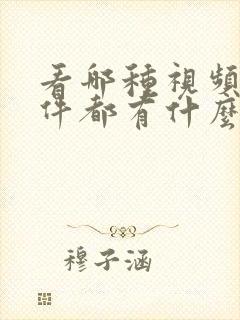 看哪種視頻
件都有什麼
穆子涵